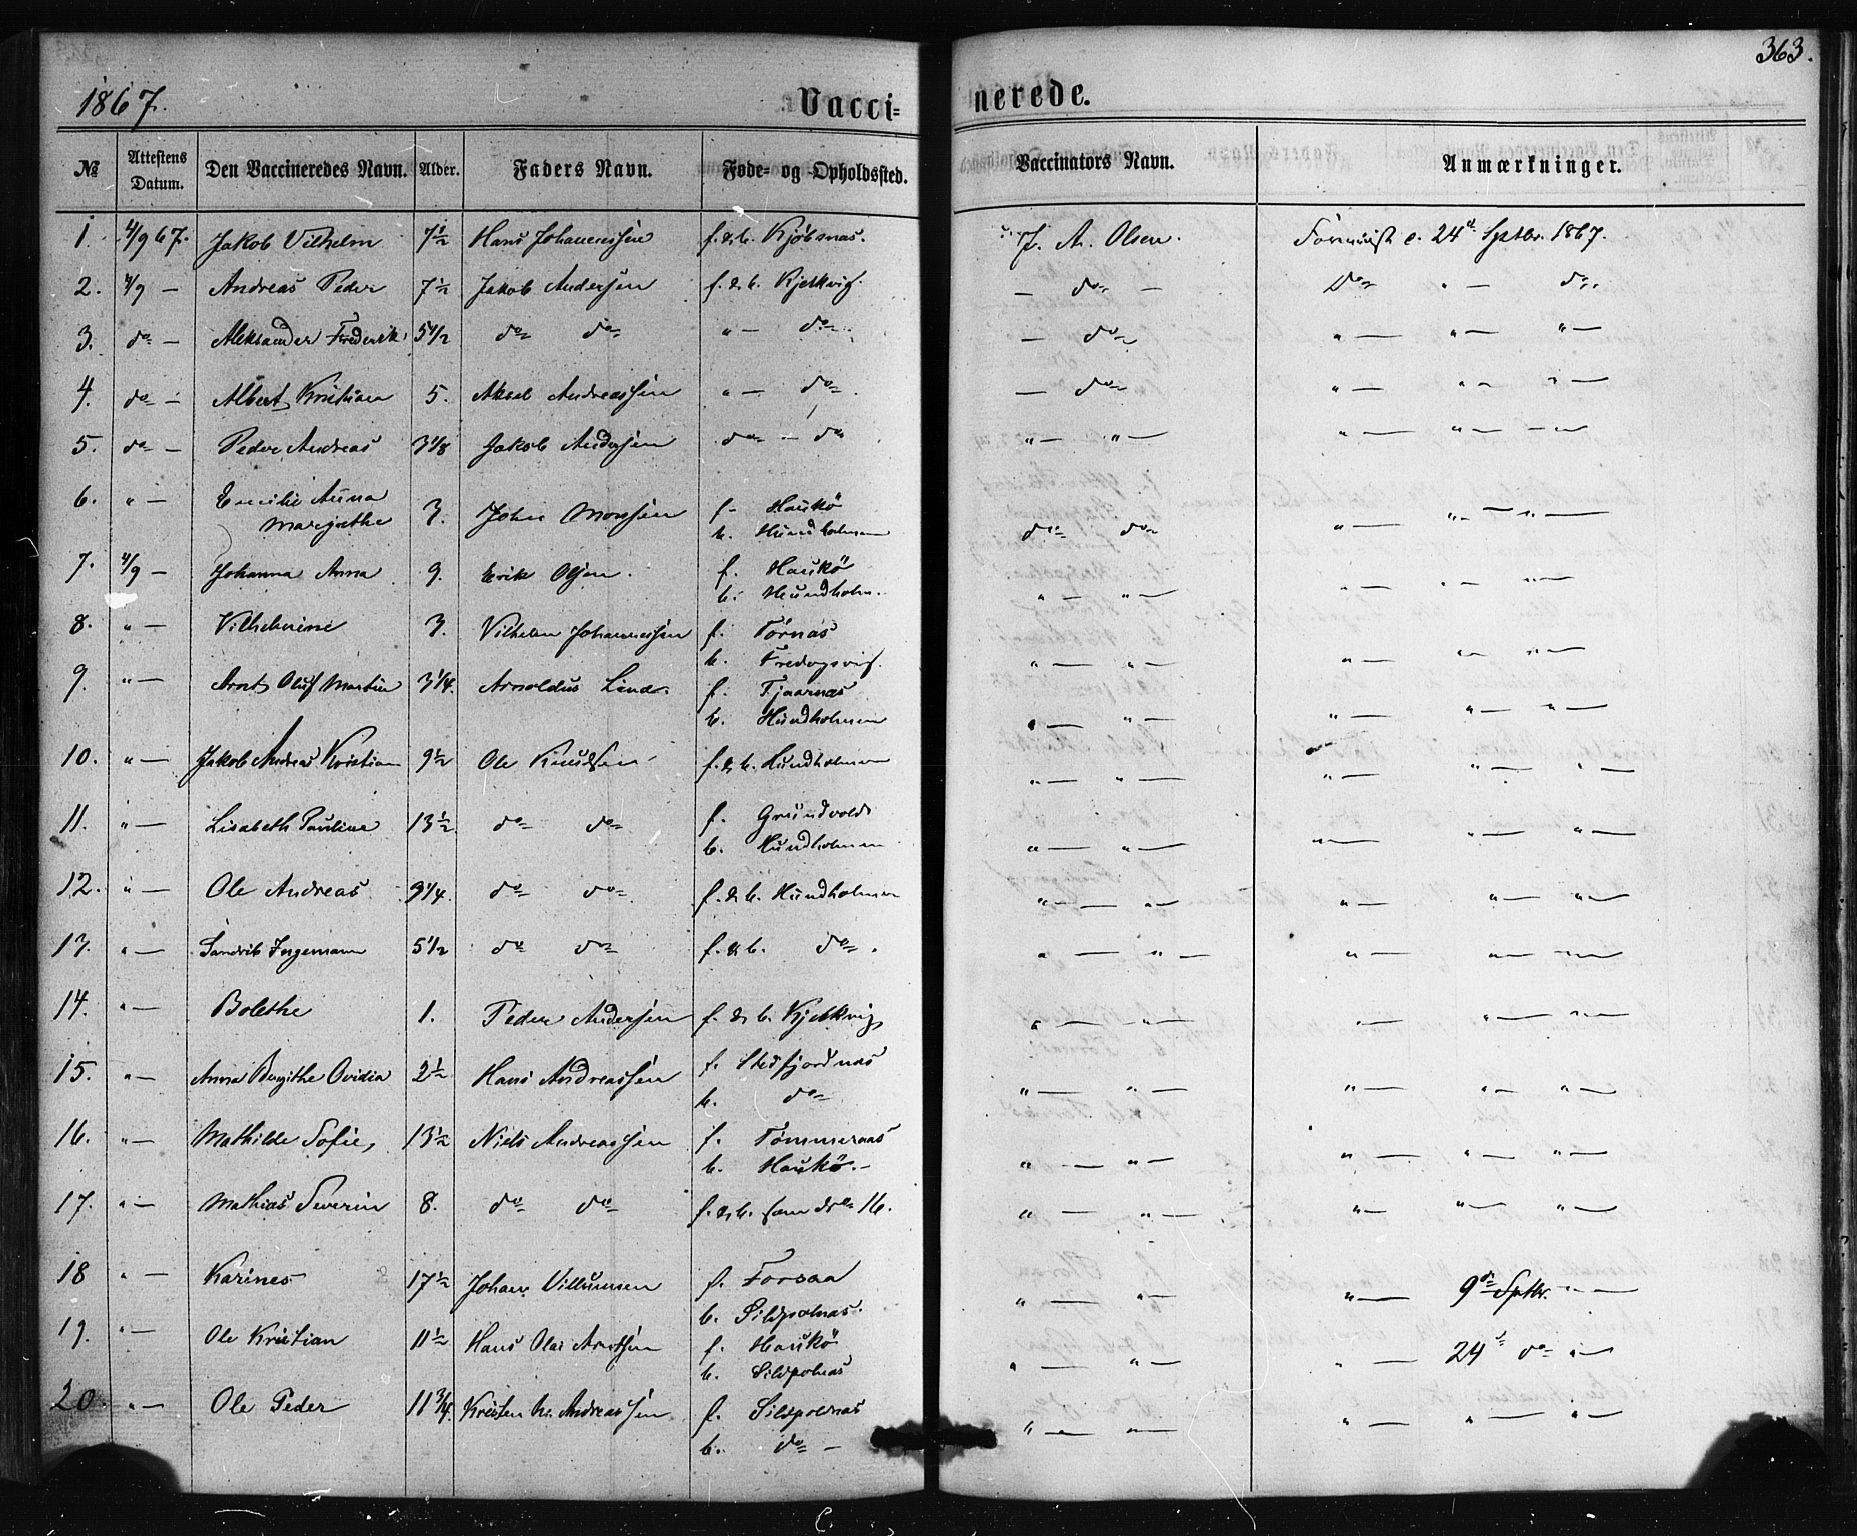 363.
1867. Vacci- nerede.
№ Attestens Datum. Den Vaccineredes Navn. Alder. Faders Navn. Føde- og Opholdssted. Vaccinators Navn. Anmærkninger.
1. 4/9 67. Jakob Vilhelm 7½ Hans Johannessen f. & b. J. A. Olsen. 24de Septbr. 1867.
2. 4/9 — Andreas Peder 7½ Jakob Andersen f. & b. Kjelkvig. — do — do " — do
3. do — Aleksander Frederik 5½ do do " — do — do " — " — " —
4. do — Albert Kristian 5. Aksel Andreassen " — do — do " — " — " —
5. do — Peder Andreas 3⅛ Jakob Andersen do — do " — " — " — " — " —
6. " — Emilie Anna
Margrethe 3. John Monsen f. Haukö
b. Hundholmen do do " — " — " —
7. 4/9 — Johanna Anna 9. Erik Olsen. f. Haukö
b. Hundholm. " — " — " — " — " —
8. " — Vilhelmine 3. Vilhelm Johannessen f. Tørnæs
b. " — " — " — " — " —
9. " — Arnt Oluf Martin 3¼. Arnoldus Lind. f.
b. Hundholmen " — " — " — " — " —
10. " — Jakob Andreas Kristian 9½ Ole Knudsen f. & b. Hundholmen " — " — " — " — " —
11. " — Lisabeth Pauline 13½ do do f. Grundvold
b. Hundholmen " — " — " — " — " —
12. " — Ole Andreas 9¼. do do f. & b. Hundholmen " — " — " — " — " —
13. " — Ingemann 5½ do do f. & b. do. " — " — " — " — " —
14. " — Bolethe 1. Peder Andersen f. & b. Kjelkvig " — " — " — " — " —
15. " — Anna Birgithe Ovidia 2½ Hans Andreassen f. Stefjordnæs
b. do " — " — " — " — " —
16. " — Mathilde Sofie, 13½ Niels Andreassen f. Tømmeraas
b. Haukö. — " — " — " — " — " —
17. " — Mathias Severin 8. do do f. & b. som 16. " — " — " — " — " —
18 " — Karines 17½ Johan Villumsen f. Forsaa
b. Sildpolnæs. " — " — " — 9de Septbr. " —
19. " — Ole Kristian 11½ Hans Olai Arntsen f. Haukö
b. Sildpolnæs " — " — " — 24de do " —
20. " — Ole Peder 11¾. Kristen Andreassen f. Sildpolnæs
b. do — " — " — " — " — " —